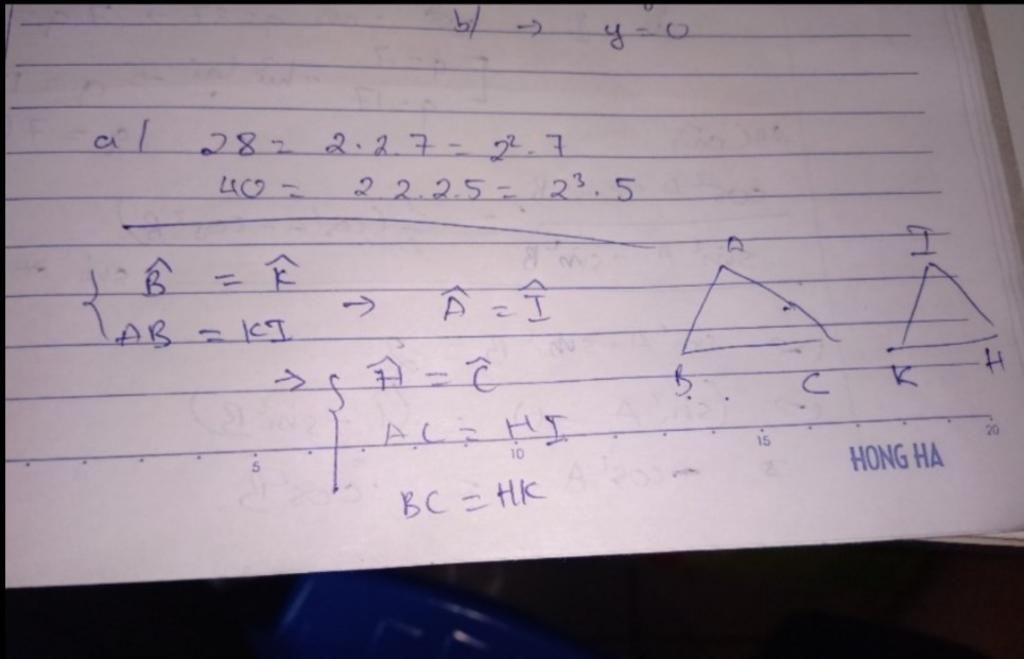 b/ → y = 0
a/ 28 = 2.2.7 = 2².7
40 = 2.2.2.5 = 2³.5
{ B̂ = K̂
AB = KI
→ Â = Î
→ { Ĥ = Ĉ
AC = HI
BC = HK
A
I
B
C
K
H
5
10
15
20
HONG HA